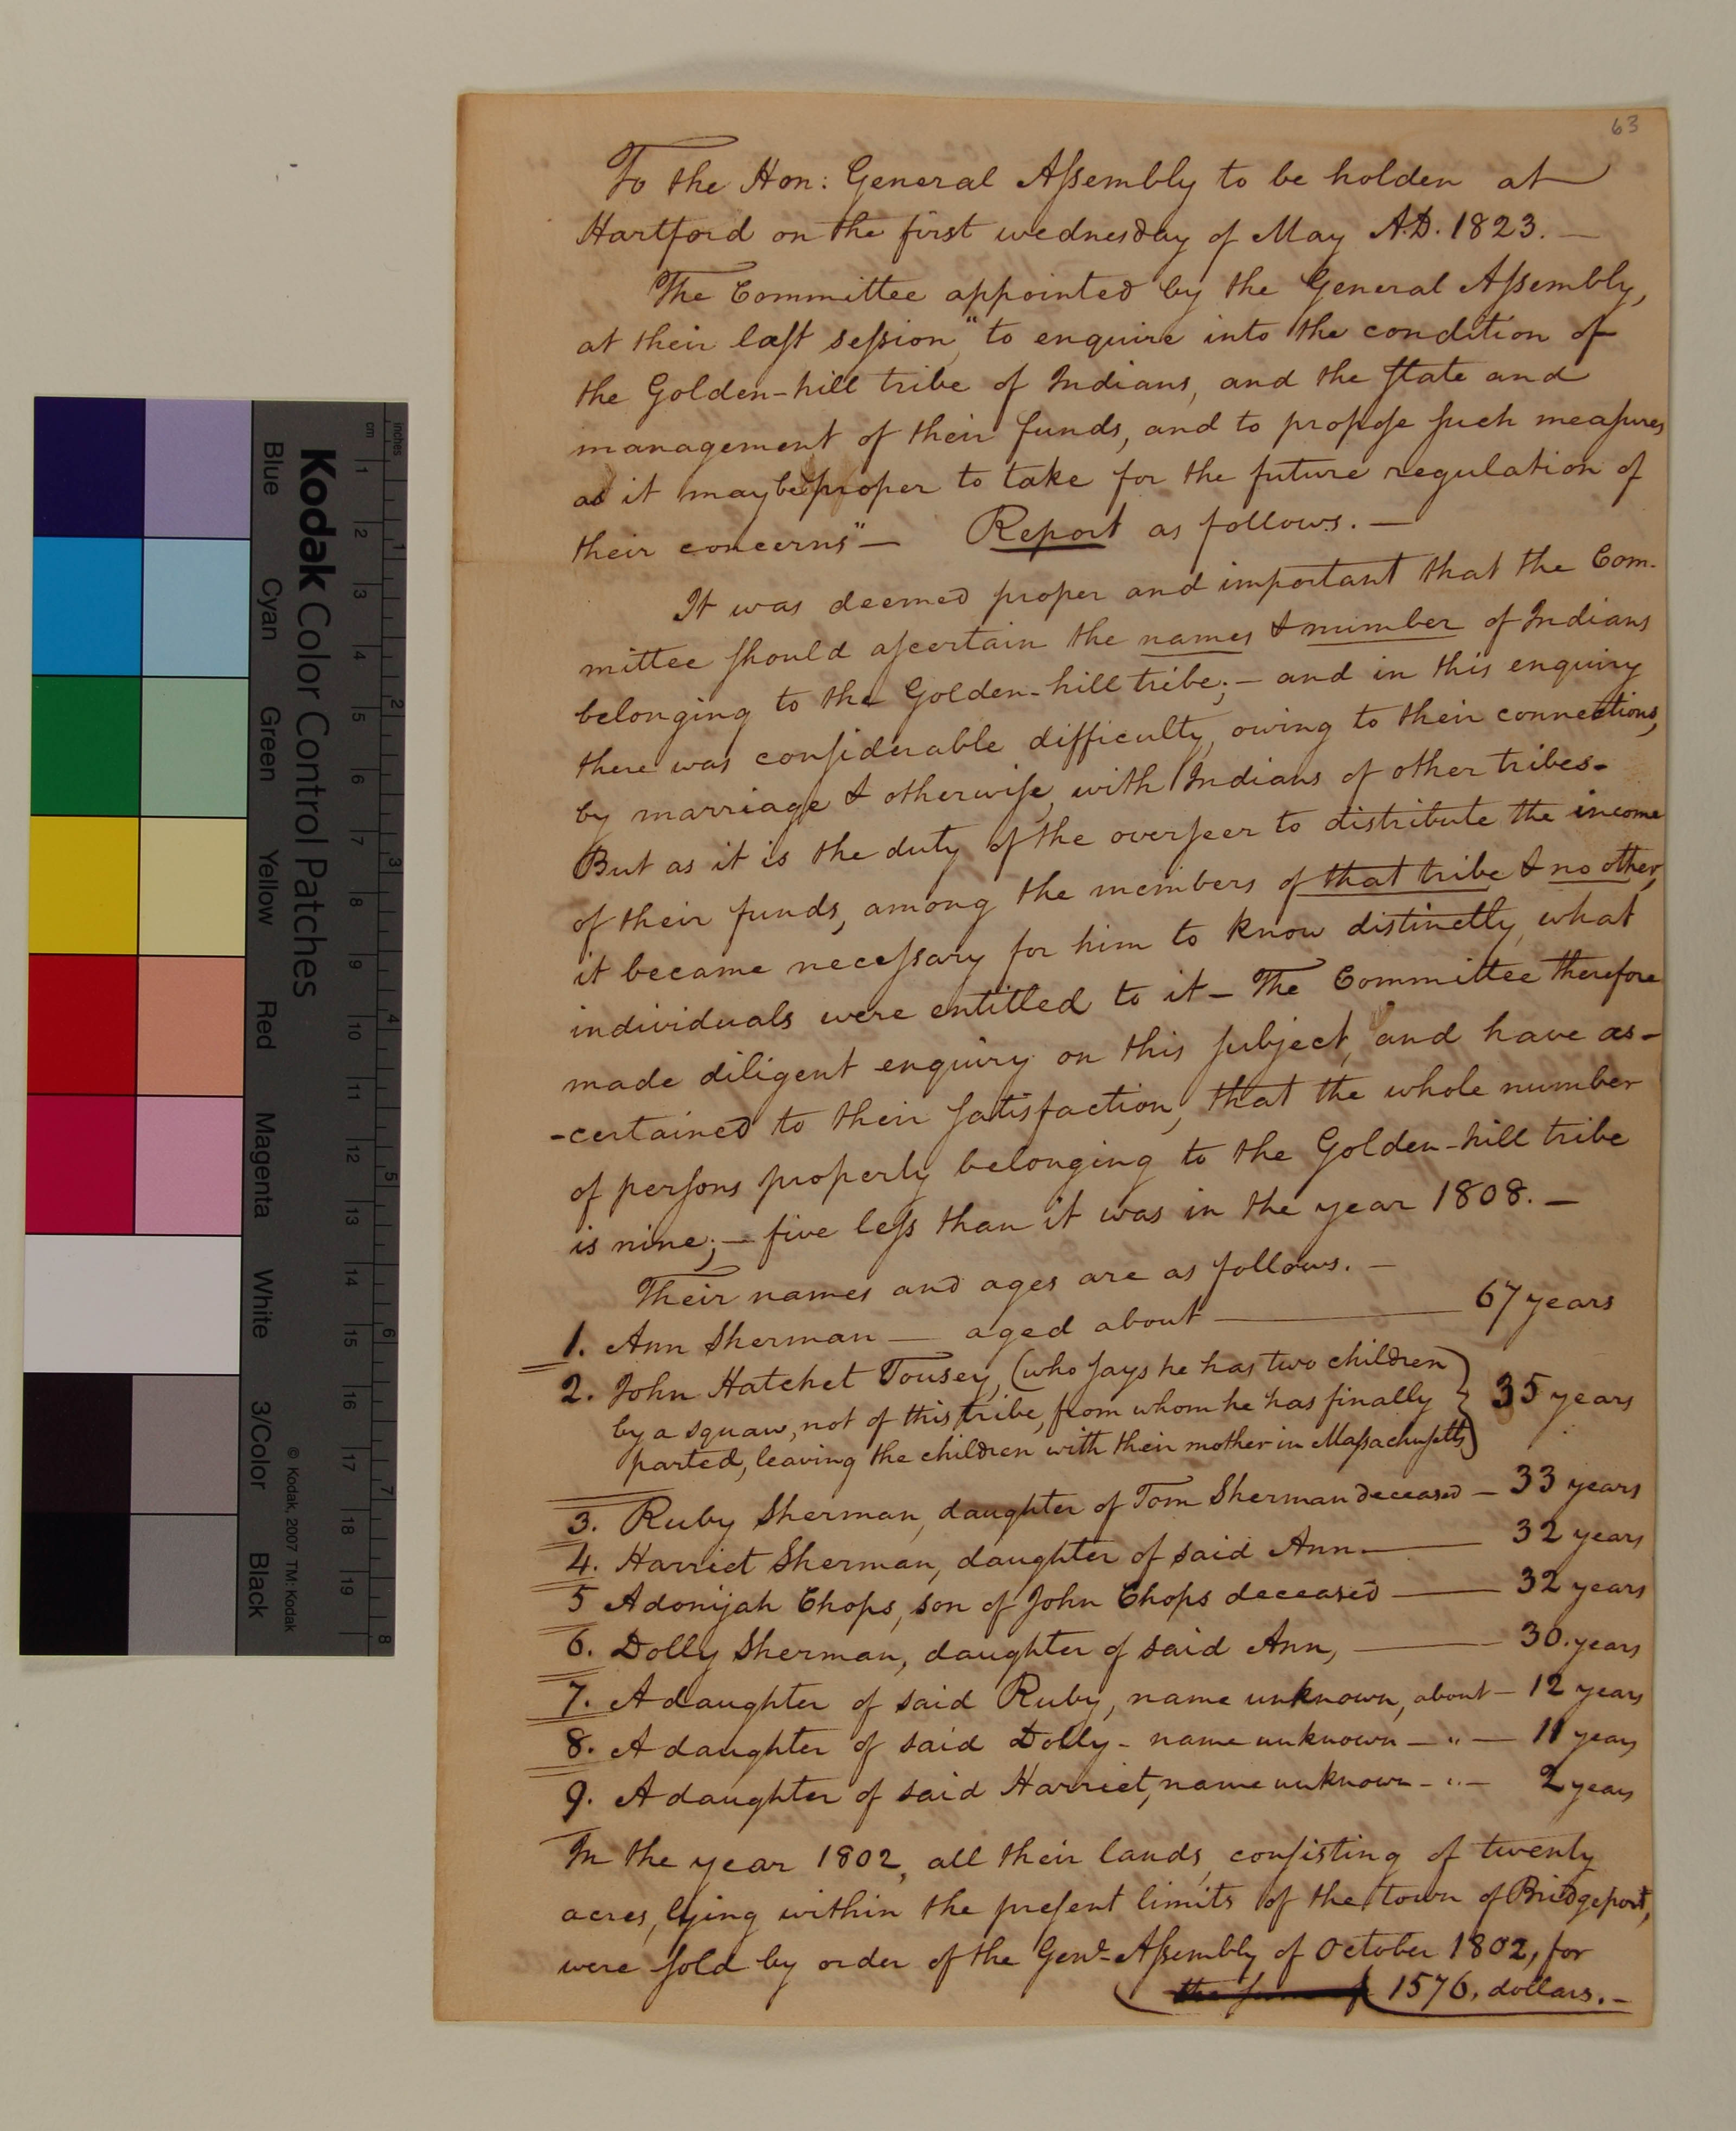 63
To the Hon: General Assembly to be holden at
Hartford on the first wednesday of May A.D. 1823. —
The Committee appointed by the General Assembly,
at their last session "to enquire into the condition of
the Golden-hill tribe of Indians, and the state and
management of their funds, and to propose such measures
as it may be proper to take for the future regulation of
their concerns" — Report as follows. —
It was deemed proper and important that the Com-
mittee should ascertain the names & number of Indians
belonging to the Golden-hill tribe; — and in this enquiry
there was considerable difficulty, owing to their connections,
by marriage & otherwise, with Indians of other tribes.
But as it is the duty of the overseer to distribute the income
of their funds, among the members of that tribe & no other,
it became necessary for him to know distinctly, what
individuals were entitled to it — The Committee therefore
made diligent enquiry on this subject, and have as-
-certained to their satisfaction, that the whole number
of persons properly belonging to the Golden-hill tribe
is nine; — five less than it was in the year 1808. —
Their names and ages are as follows. —
1. Ann Sherman — aged about — 67 years
2. John Hatchet Tousey, (who says he has two children
by a squaw, not of this tribe, from whom he has finally } 35 years
parted, leaving the children with their mother in Massachusetts)
3. Ruby Sherman, daughter of Tom Sherman deceased — 33 years
4. Harriet Sherman, daughter of said Ann — 32 years
5 Adonijah Chops, son of John Chops deceased — 32 years
6. Dolly Sherman, daughter of said Ann, — 30. years
7. A daughter of said Ruby, name unknown, about — 12 years
8. A daughter of said Dolly - name unknown — " — 11 years
9. A daughter of said Harriet, name unknown - " — 2 years
In the year 1802, all their lands, consisting of twenty
acres, lying within the present limits of the town of Bridgeport,
were sold by order of the Genl Assembly of October 1802, for
the sum of 1576, dollars. —
Kodak Color Control Patches
Blue Cyan Green Yellow Red Magenta White 3/Color Black
© Kodak, 2007 TM: Kodak
inches 1 2 3 4 5 6 7 8
cm 1 2 3 4 5 6 7 8 9 10 11 12 13 14 15 16 17 18 19